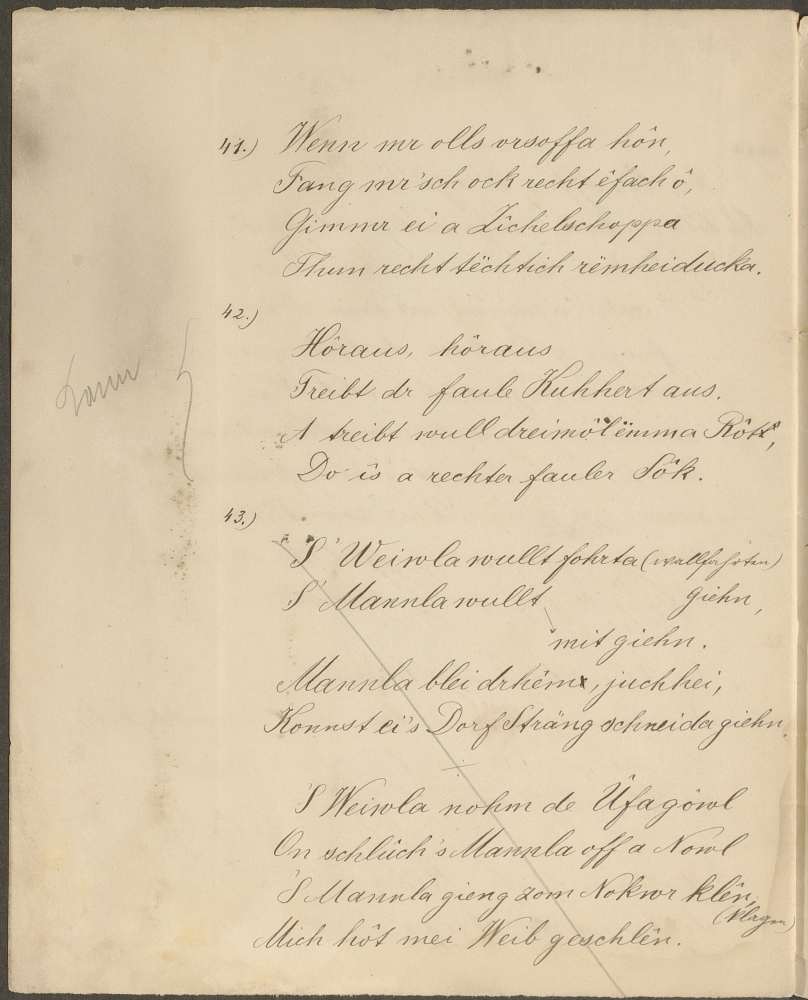 41.) Wenn mr olls vrsoffa hôn,
Fang mr'sch ock recht êfach ô,
Gimmr ei a Zîchelschoppa
Thum recht tëchtich rëmheiducka.
42.)
Hôraus, hôraus
Treibt dr faule Kuhhert aus.
A treibt wull dreimôl ëmma Rôtt,
Do îs a rechter fauler Sôk.
43.)
'S Weiwla wullt fohrta (wallfahrten)
S' Mannla wullt giehn,
mit giehn.
Mannla blei drhêm, juchhei,
Konnst ei's Dorf Sträng schneida giehn.
'S Weiwla nohm de Ûfagôwl
On schlûch's Mannla off a Nowl
'S Mannla gieng zom Nokwr klên,
(klagen)
Mich hôt mei Weib geschlên.